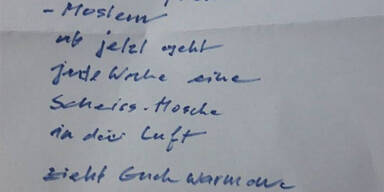 - Moslem
ab jetzt geht
jede Woche eine
Scheiss-Moschee
in die Luft
zieht Euch warm an